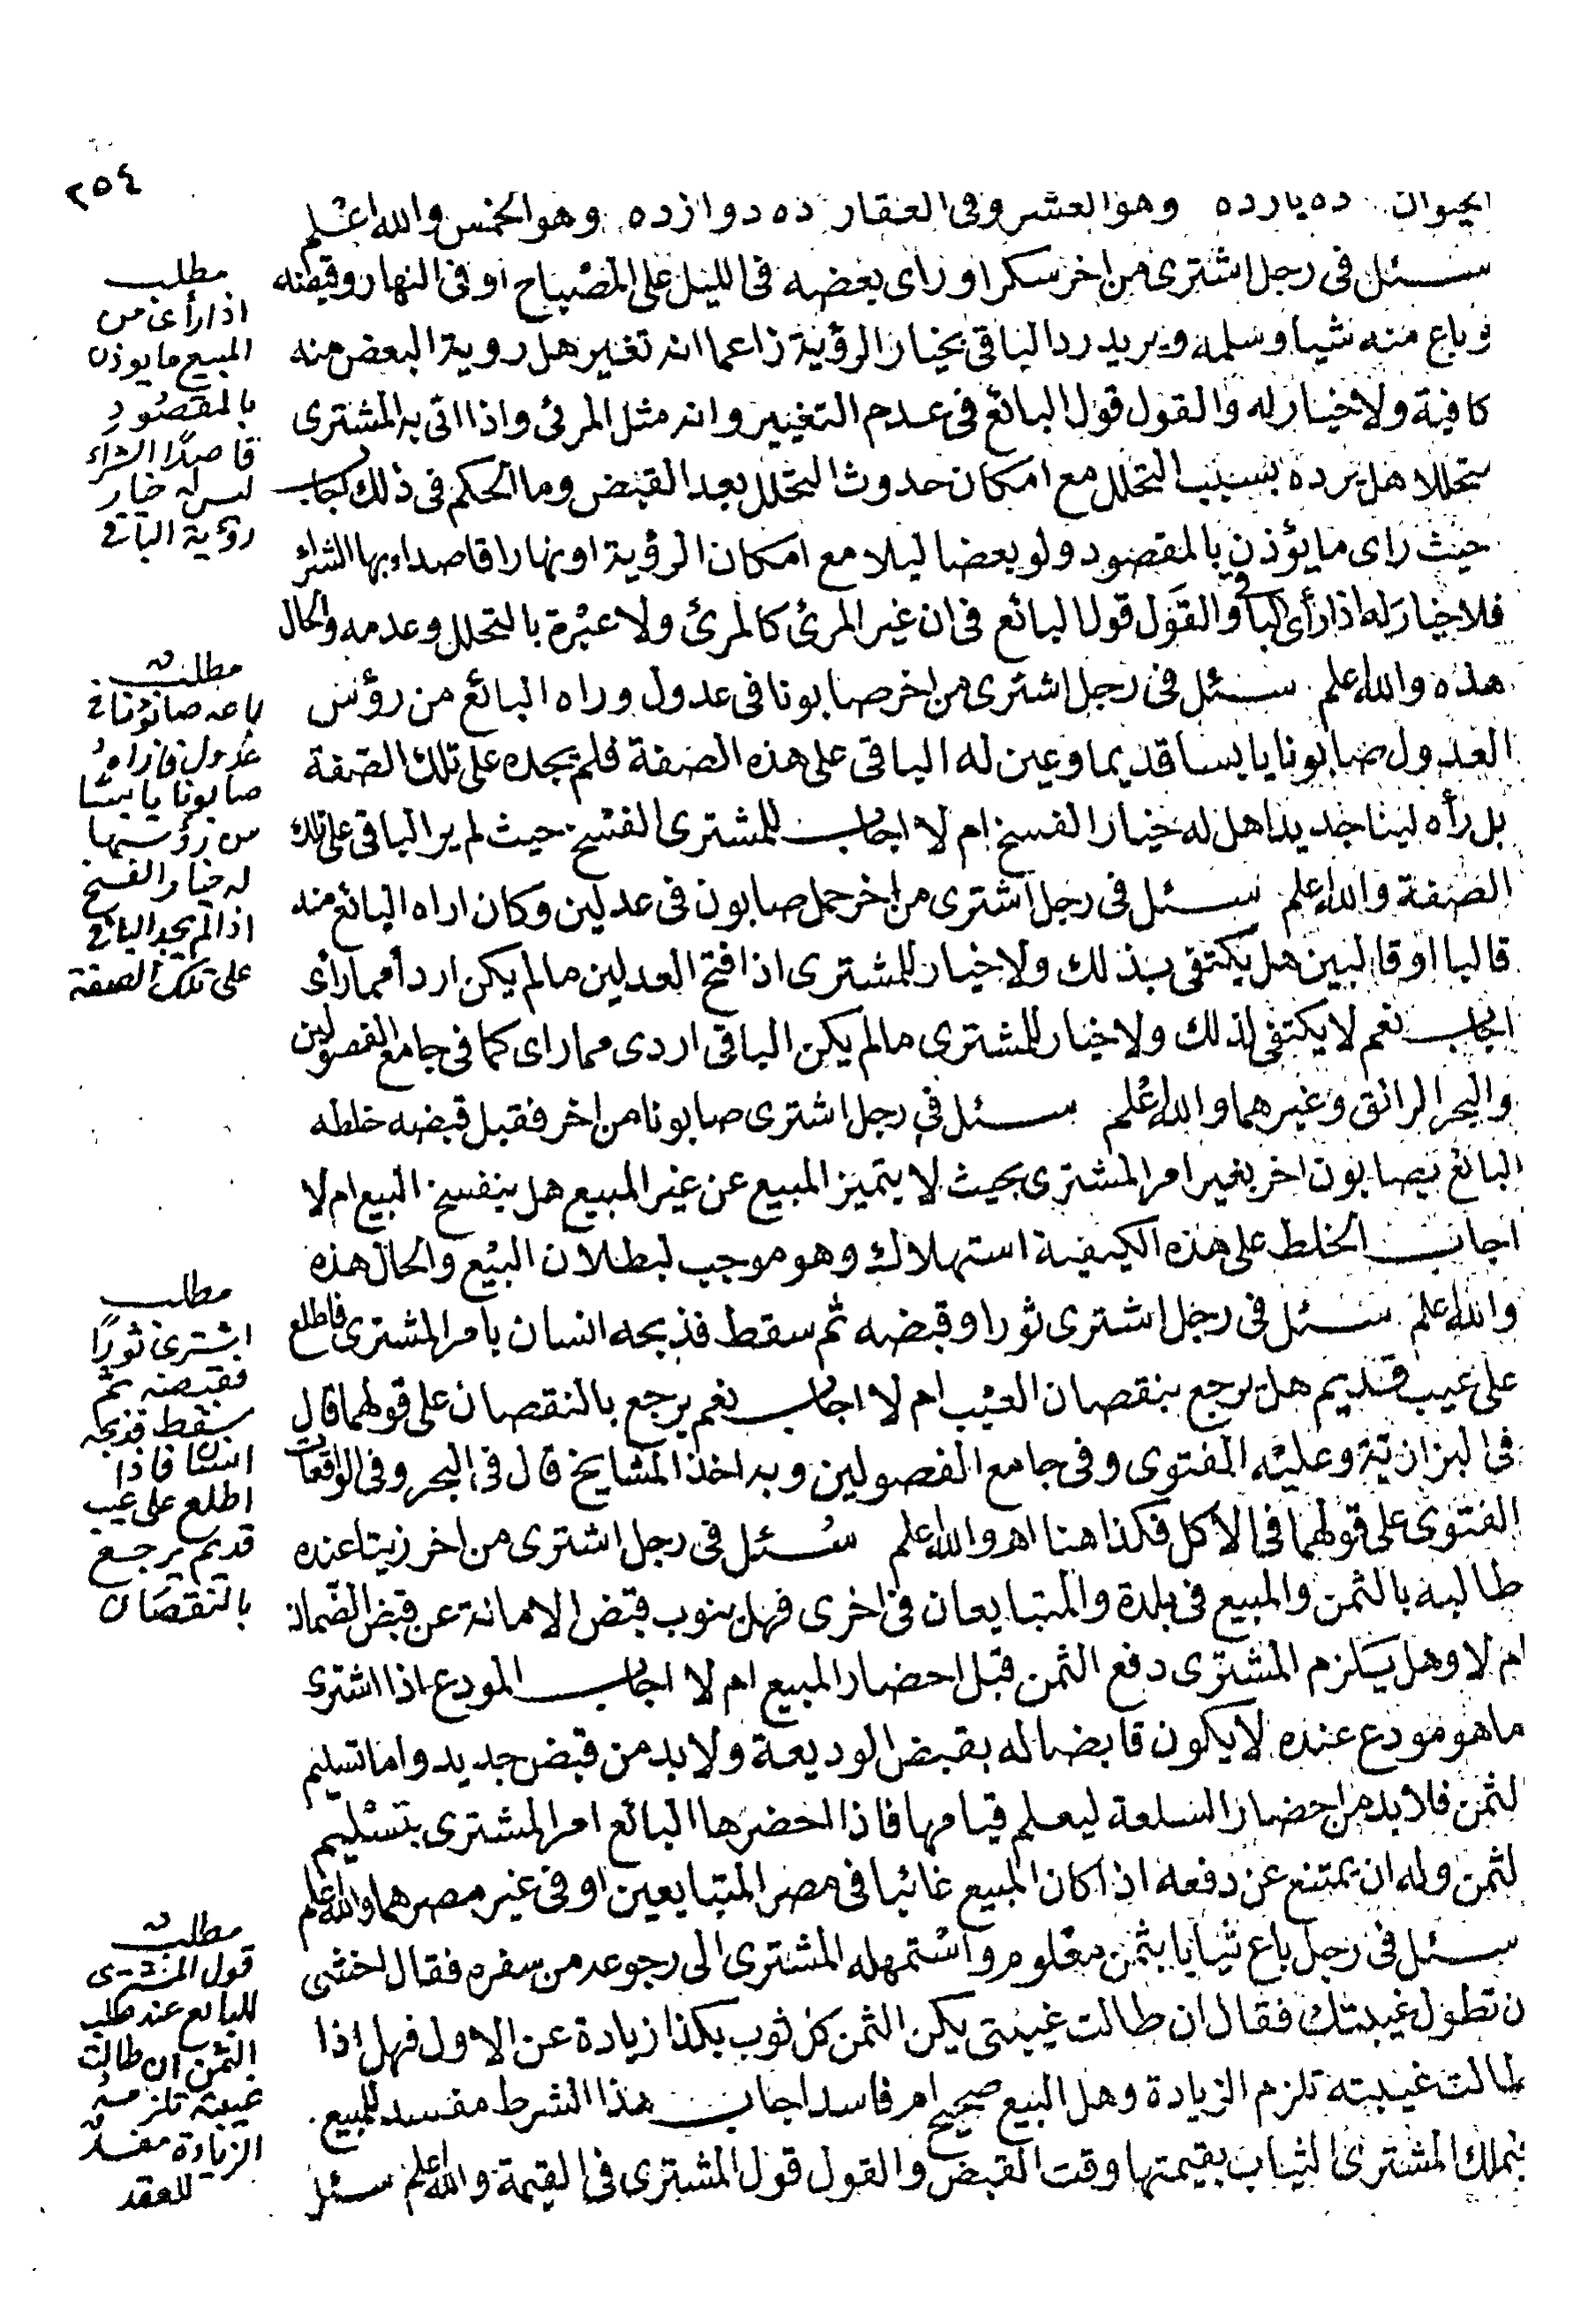 ٢٥٤
الحيوان ده يازده وهو العشر وفي العقار ده دوازده وهو الخمس والله اعلم
سئل في رجل اشترى من اخر سكرا وراى بعضه في الليل على المصباح او في النهار وقبضه
وباع منه شيا وسلمه ويريد رد الباقي بخيار الرؤية زاعما انه تغير هل روية البعض منه
كافية ولا خيار له والقول قول البائع في عدم التغيير وانه مثل المرئى واذا اتى به المشترى
متحللا هل يرده بسبب التحلل مع امكان حدوث التحلل بعد القبض وما الحكم في ذلك اجاب
حيث راى ما يؤذن بالمقصود ولو بعضا ليلا مع امكان الرؤية او نهارا قاصدا بها الشراء
فلا خيار له اذا رأى الباقي والقول قول البائع في ان غير المرئ كالمرئ ولا عبرة بالتحلل وعدمه والحال
هذه والله اعلم سئل في رجل اشترى من اخر صابونا في عدول وراه البائع من رؤس
العدول صابونا يابسا قديما وعين له الباقي على هذه الصفة فلم يجده على تلك الصفة
بل رأه لينا جديدا هل له خيار الفسخ ام لا اجاب للمشترى الفسخ حيث لم ير الباقي على تلك
الصفة والله اعلم سئل في رجل اشترى من اخر حمل صابون في عدلين وكان اراه البائع منه
قالبا او قالبين هل يكتفى بذلك ولا خيار للمشترى اذا فتح العدلين مالم يكن اردأ مما رأى
اجاب نعم لا يكتفى لذلك ولا خيار للمشترى مالم يكن الباقي اردى مما راى كما في جامع الفصولين
والبحر الرائق وغيرهما والله اعلم سئل في رجل اشترى صابونا من اخر فقبل قبضه خلطه
البائع بصابون اخر بغير امر المشترى بحيث لا يتميز المبيع عن غير المبيع هل ينفسخ البيع ام لا
اجاب الخلط على هذه الكيفية استهلاك وهو موجب لبطلان البيع والحال هذه
والله اعلم سئل في رجل اشترى ثورا وقبضه ثم سقط فذبحه انسان بامر المشترى فاطلع
على عيب قديم هل يرجع بنقصان العيب ام لا اجاب نعم يرجع بالنقصان على قولهما قال
في البزازية وعليه الفتوى وفي جامع الفصولين وبه اخذ المشايخ قال في البحر وفي الواقعات
الفتوى على قولهما في الاكل فكذا هنا اهـ والله اعلم سئل في رجل اشترى من اخر زيتا عنده
طالبه بالثمن والمبيع في بلدة والمتبايعان في اخرى فهل ينوب قبض الامانة عن قبض الضمان
ام لا وهل يلزم المشترى دفع الثمن قبل احضار المبيع ام لا اجاب المودع اذا اشترى
ماهو مودع عنده لا يكون قابضا له بقبض الوديعة ولا بد من قبض جديد واما تسليم
لثمن فلا بد من احضار السلعة ليعلم قيامها فاذا احضرها البائع امر المشترى بتسليم
لثمن وله ان يمتنع عن دفعه اذا كان المبيع غائبا في مصر المتبايعين او في غير مصرهما والله اعلم
سئل في رجل باع ثيابا بثمن معلوم واستمهله المشترى الى رجوعه من سفره فقال اخشى
ن تطول غيبتك فقال ان طالت غيبتى يكن الثمن كل ثوب بكذا زيادة عن الاول فهل اذا
طالت غيبته تلزم الزيادة وهل البيع صحيح ام فاسد اجاب هذا الشرط مفسد للبيع
يملك المشترى الثياب بقيمتها وقت القبض والقول قول المشترى في القيمة والله اعلم سئل
مطلب
اذا رأى من
المبيع ما يوذن
بالمقصود
قاصدا الشراء
ليس له خيار
رؤية الباقي
مطلب
باعه صابونا في
عدول فاراه
صابونا يابسا
من رؤسها
له خيار الفسخ
اذا لم يجد الباقي
على تلك الصفة
مطلب
اشترى ثورا
فقبضه ثم
سقط فذبحه
انسان فاذا
اطلع على عيب
قديم يرجع
بالنقصان
مطلب
قول المشترى
للبائع عند طلب
الثمن ان طالت
غيبته تلزمه
الزيادة مفسد
للعقد